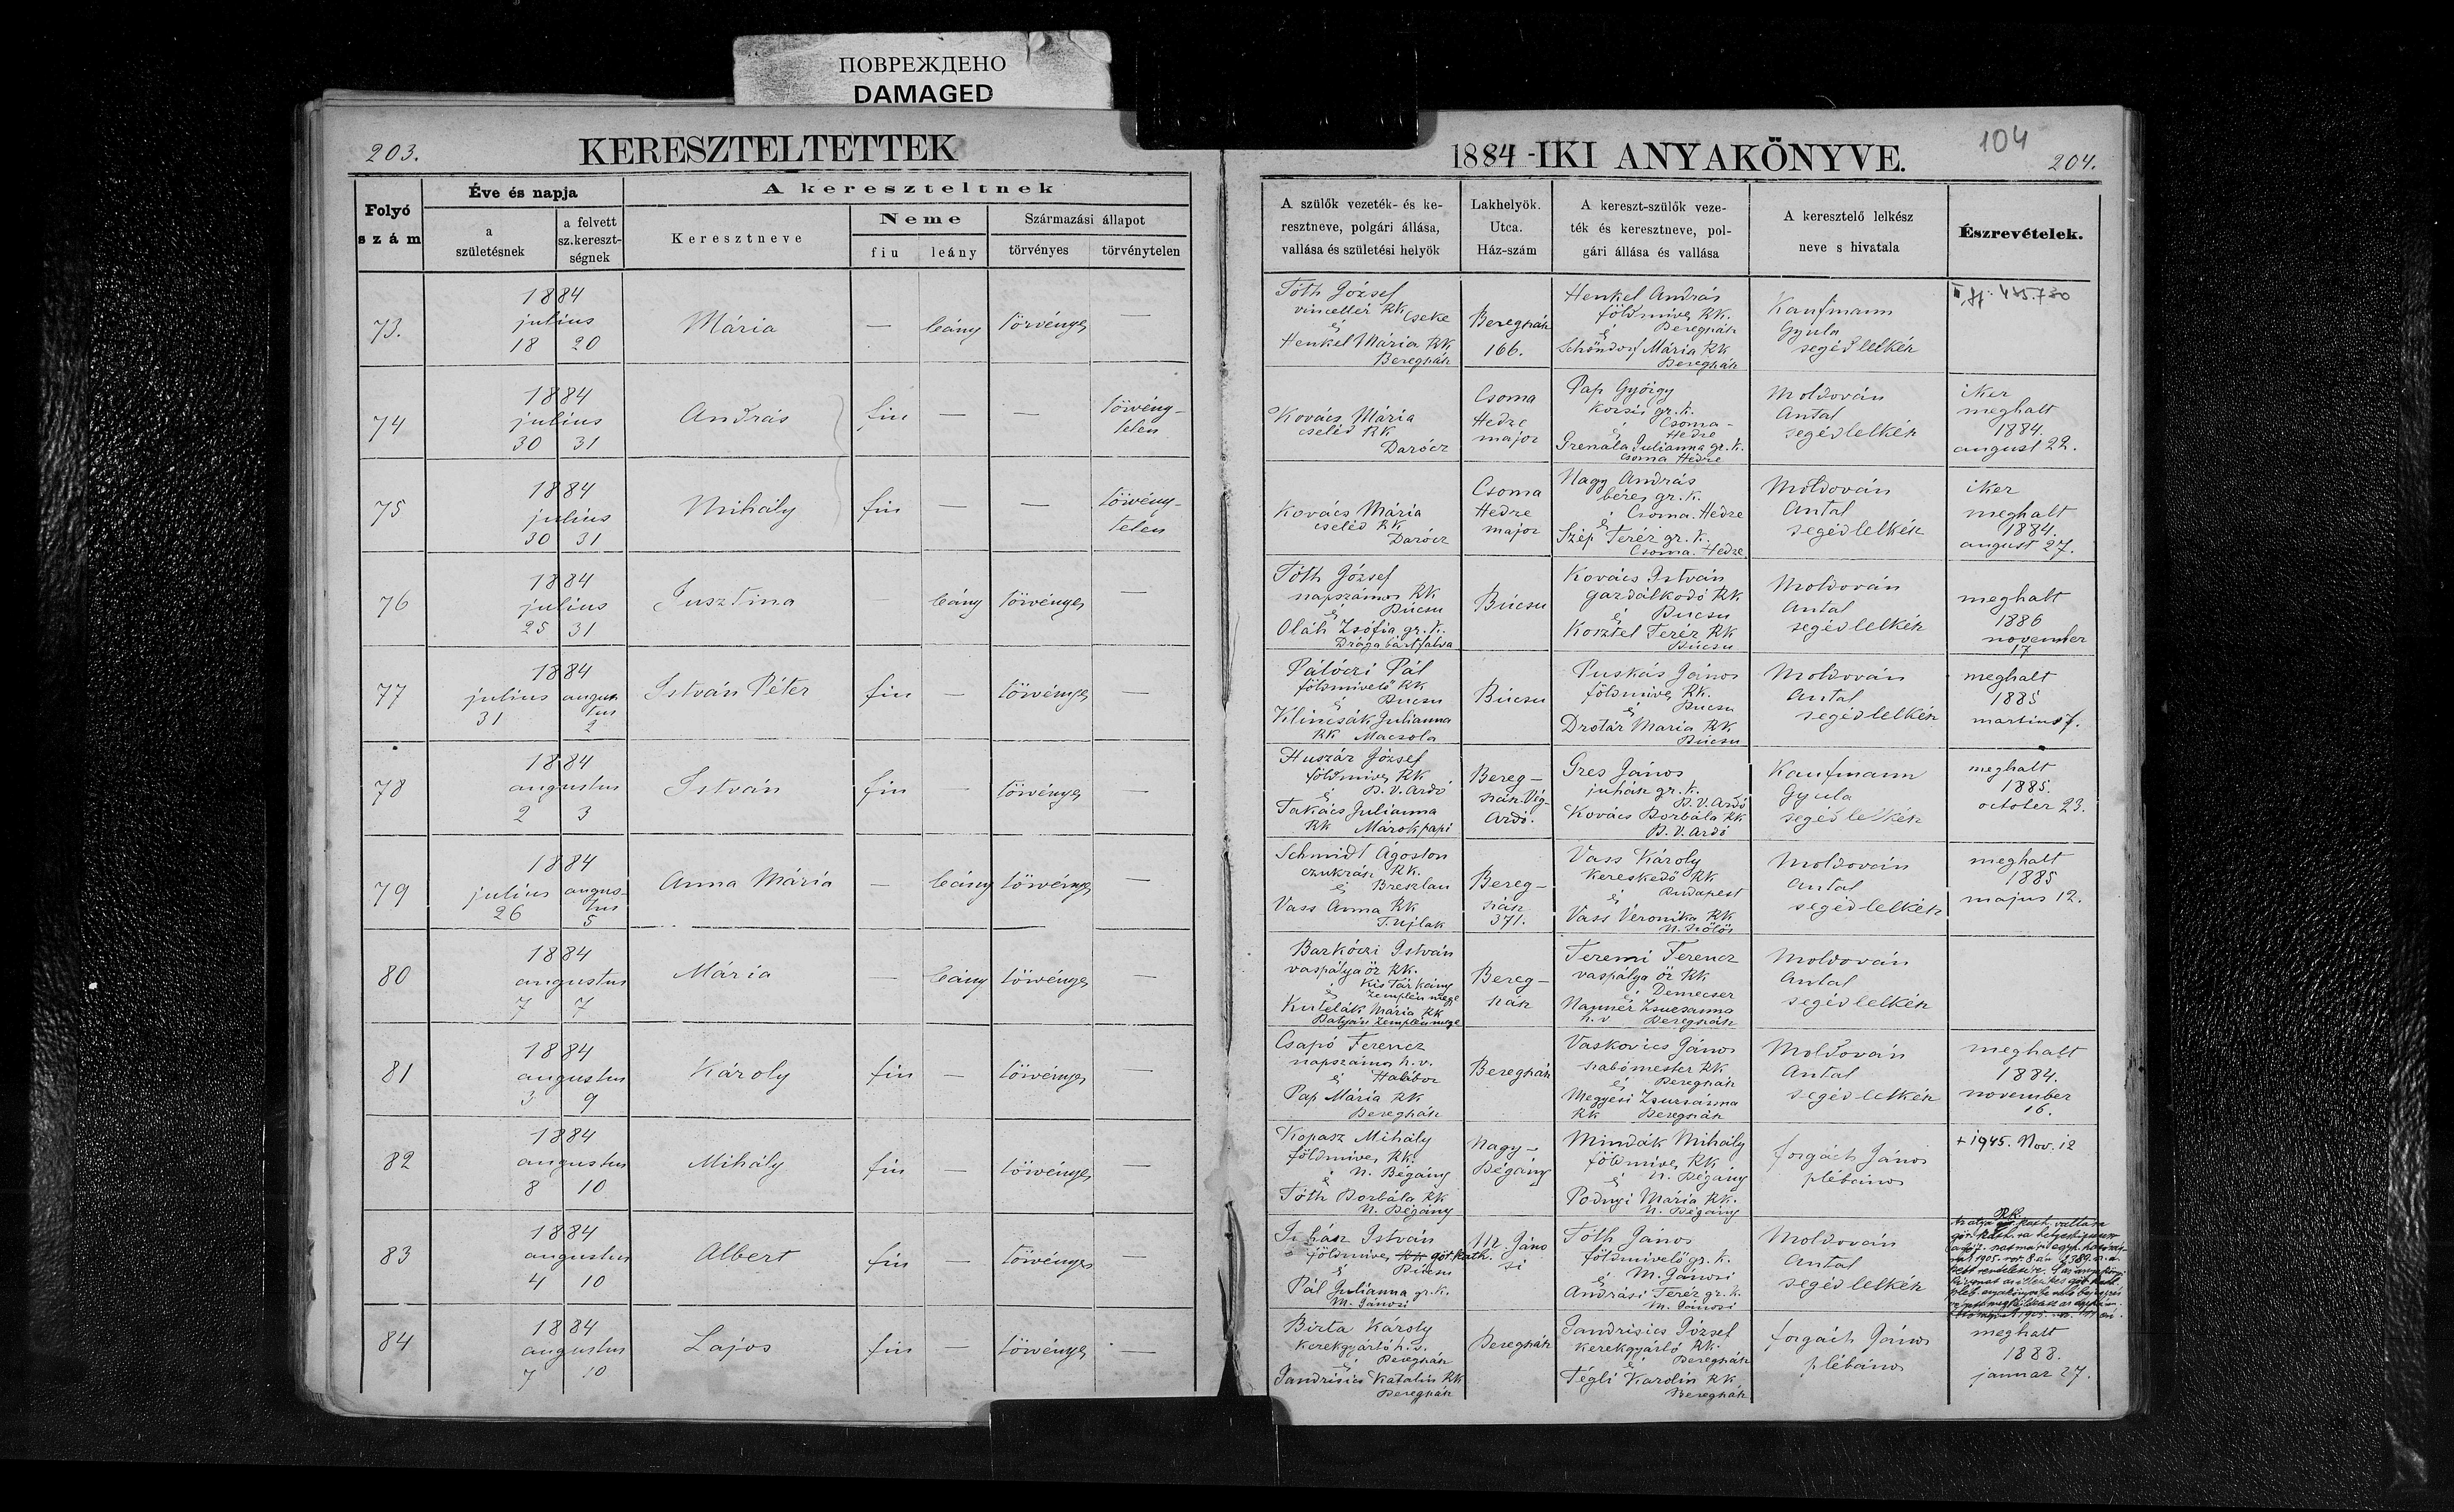 ПОВРЕЖДЕНО
DAMAGED
203.
KERESZTELTETTEK
Folyó
szám
Éve és napja
a
születésnek
a felvett
sz.kereszt-
ségnek
A kereszteltnek
Keresztneve
Neme
fiu
leány
Származási állapot
törvényes
törvénytelen
73.
1884
julius
18 20
Mária
—
leány
törvényes
—
74
1884
julius
30 31
András
fiu
—
—
törvény-
telen
75
1884
julius
30 31
Mihály
fiu
—
—
törvény-
telen
76
1884
julius
25 31
Jusztina
—
leány
törvényes
—
77
1884
julius augus
31 tus
2
István Péter
fiu
—
törvényes
—
78
1884
augustus
2 3
István
fiu
—
törvényes
—
79
1884
julius augus-
26 tus
5
Anna Mária
—
leány
törvényes
—
80
1884
augustus
7 7
Mária
—
leány
törvényes
—
81
1884
augustus
3 9
Károly
fiu
—
törvényes
—
82
1884
augustus
8 10
Mihály
fiu
—
törvényes
—
83
1884
augustus
4 10
Albert
fiu
—
törvényes
—
84
1884
augustus
7 10
Lajos
fiu
—
törvényes
—
1884-IKI ANYAKÖNYVE.
104
204.
A szülők vezeték- és ke-
resztneve, polgári állása,
vallása és születési helyök
Lakhelyök.
Utca.
Ház-szám
A kereszt-szülők veze-
ték és keresztneve, pol-
gári állása és vallása
A keresztelő lelkész
neve s hivatala
Észrevételek.
Tóth József
vincellér RK
Cseke
é
Henkel Mária RK
Beregszász
Beregszász
166.
Henkel András
földmives RK.
é Beregszász
Schöndorf Mária RK
Beregszász
Kaufmann
Gyula
segédlelkész
Kovács Mária
cseléd RK
Darócz
Csoma
Hedre
major
Pap György
kocsis gr. k.
é Csoma-
Hedre
Julianna gr. k.
Csoma Hedre
Moldován
Antal
segédlelkész
iker
meghalt
1884.
august 22.
Kovács Mária
cseléd RK
Darócz
Csoma
Hedre
major
Nagy András
béres gr. k.
é Csoma. Hedre
Szép Teréz gr. k.
Csoma. Hedre
Moldován
Antal
segédlelkész
iker
meghalt
1884.
august 27.
Tóth József
napszámos RK
é Búcsu
Oláh Zsófia gr. k.
Drágabártfalva
Búcsu
Kovács István
gazdálkodó RK
é Bucsu
Kosztel Teréz RK
Búcsu
Moldován
Antal
segédlelkész
meghalt
1886
november
17
Pálóczi Pál
földmivelő RK
é Bucsu
Klincsák Julianna
RK Macsola
Búcsu
Puskás János
földmives RK.
é Bucsu
Drotár Mária RK
Búcsu
Moldován
Antal
segédlelkész
meghalt
1885
martius 7.
Huszár József
földmives RK
é B. V. Ardó
Takács Julianna
RK Márokpapi
Bereg-
szász-Vég-
Ardó.
Gres János
juhász gr. k.
é B. V. Ardó
Kovács Borbála RK
B. V. Ardó
Kaufmann
Gyula
segédlelkész
meghalt
1885.
october 23.
Schmidt Ágoston
czukrász RK.
é Breszlau
Vass Anna RK
T. Ujlak
Bereg-
szász
371.
Vass Károly
kereskedő RK
é Budapest
Vass Veronika RK
N. Szőlős
Moldován
Antal
segédlelkész
meghalt
1885
majus 12.
Barkóczi István
vaspálya őr RK.
Kis Tárkány
é Zemplén mege
Kutelák Mária RK
Batyán Zemplén mege
Bereg-
szász
Teremi Ferencz
vaspálya őr RK
é Demecser
Zsuzsanna
h. v Beregszász
Moldován
Antal
segédlelkész
Csapó Ferencz
napszámos h. v.
é Halábor
Pap Mária RK
Beregszász
Beregszász
Vaskovics János
szabómester RK
é Beregszász
Megyesi Zsuzsánna
RK Beregszász
Moldován
Antal
segédlelkész
meghalt
1884.
november
16.
Kopasz Mihály
földmives RK.
é N. Bégány
Tóth Borbála RK
N. Bégány
Nagy-
Bégány
Mindák Mihály
földmives RK
é N. Bégány
Mária RK.
N. Bégány
Forgách János
plébános
+ 1945. Nov. 12
István
földmives RK gör. kath.
é Búcsu
Pál Julianna gr. k.
M. Jánosi
M. Jáno
si
Tóth János
földmivelő gr. k.
é M. Jánosi
Andrási Teréz gr. k.
M. Jánosi
Moldován
Antal
segédlelkész
Birta Károly
kerekgyártó h. v.
é Beregszász
Jandrisics Katalin RK
Beregszász
Beregszász
Jandrisics József
kerekgyártó RK.
é Beregszász
Tégli Karolin RK
Beregszász
Forgách János
plébános
meghalt
1888.
januar 27.